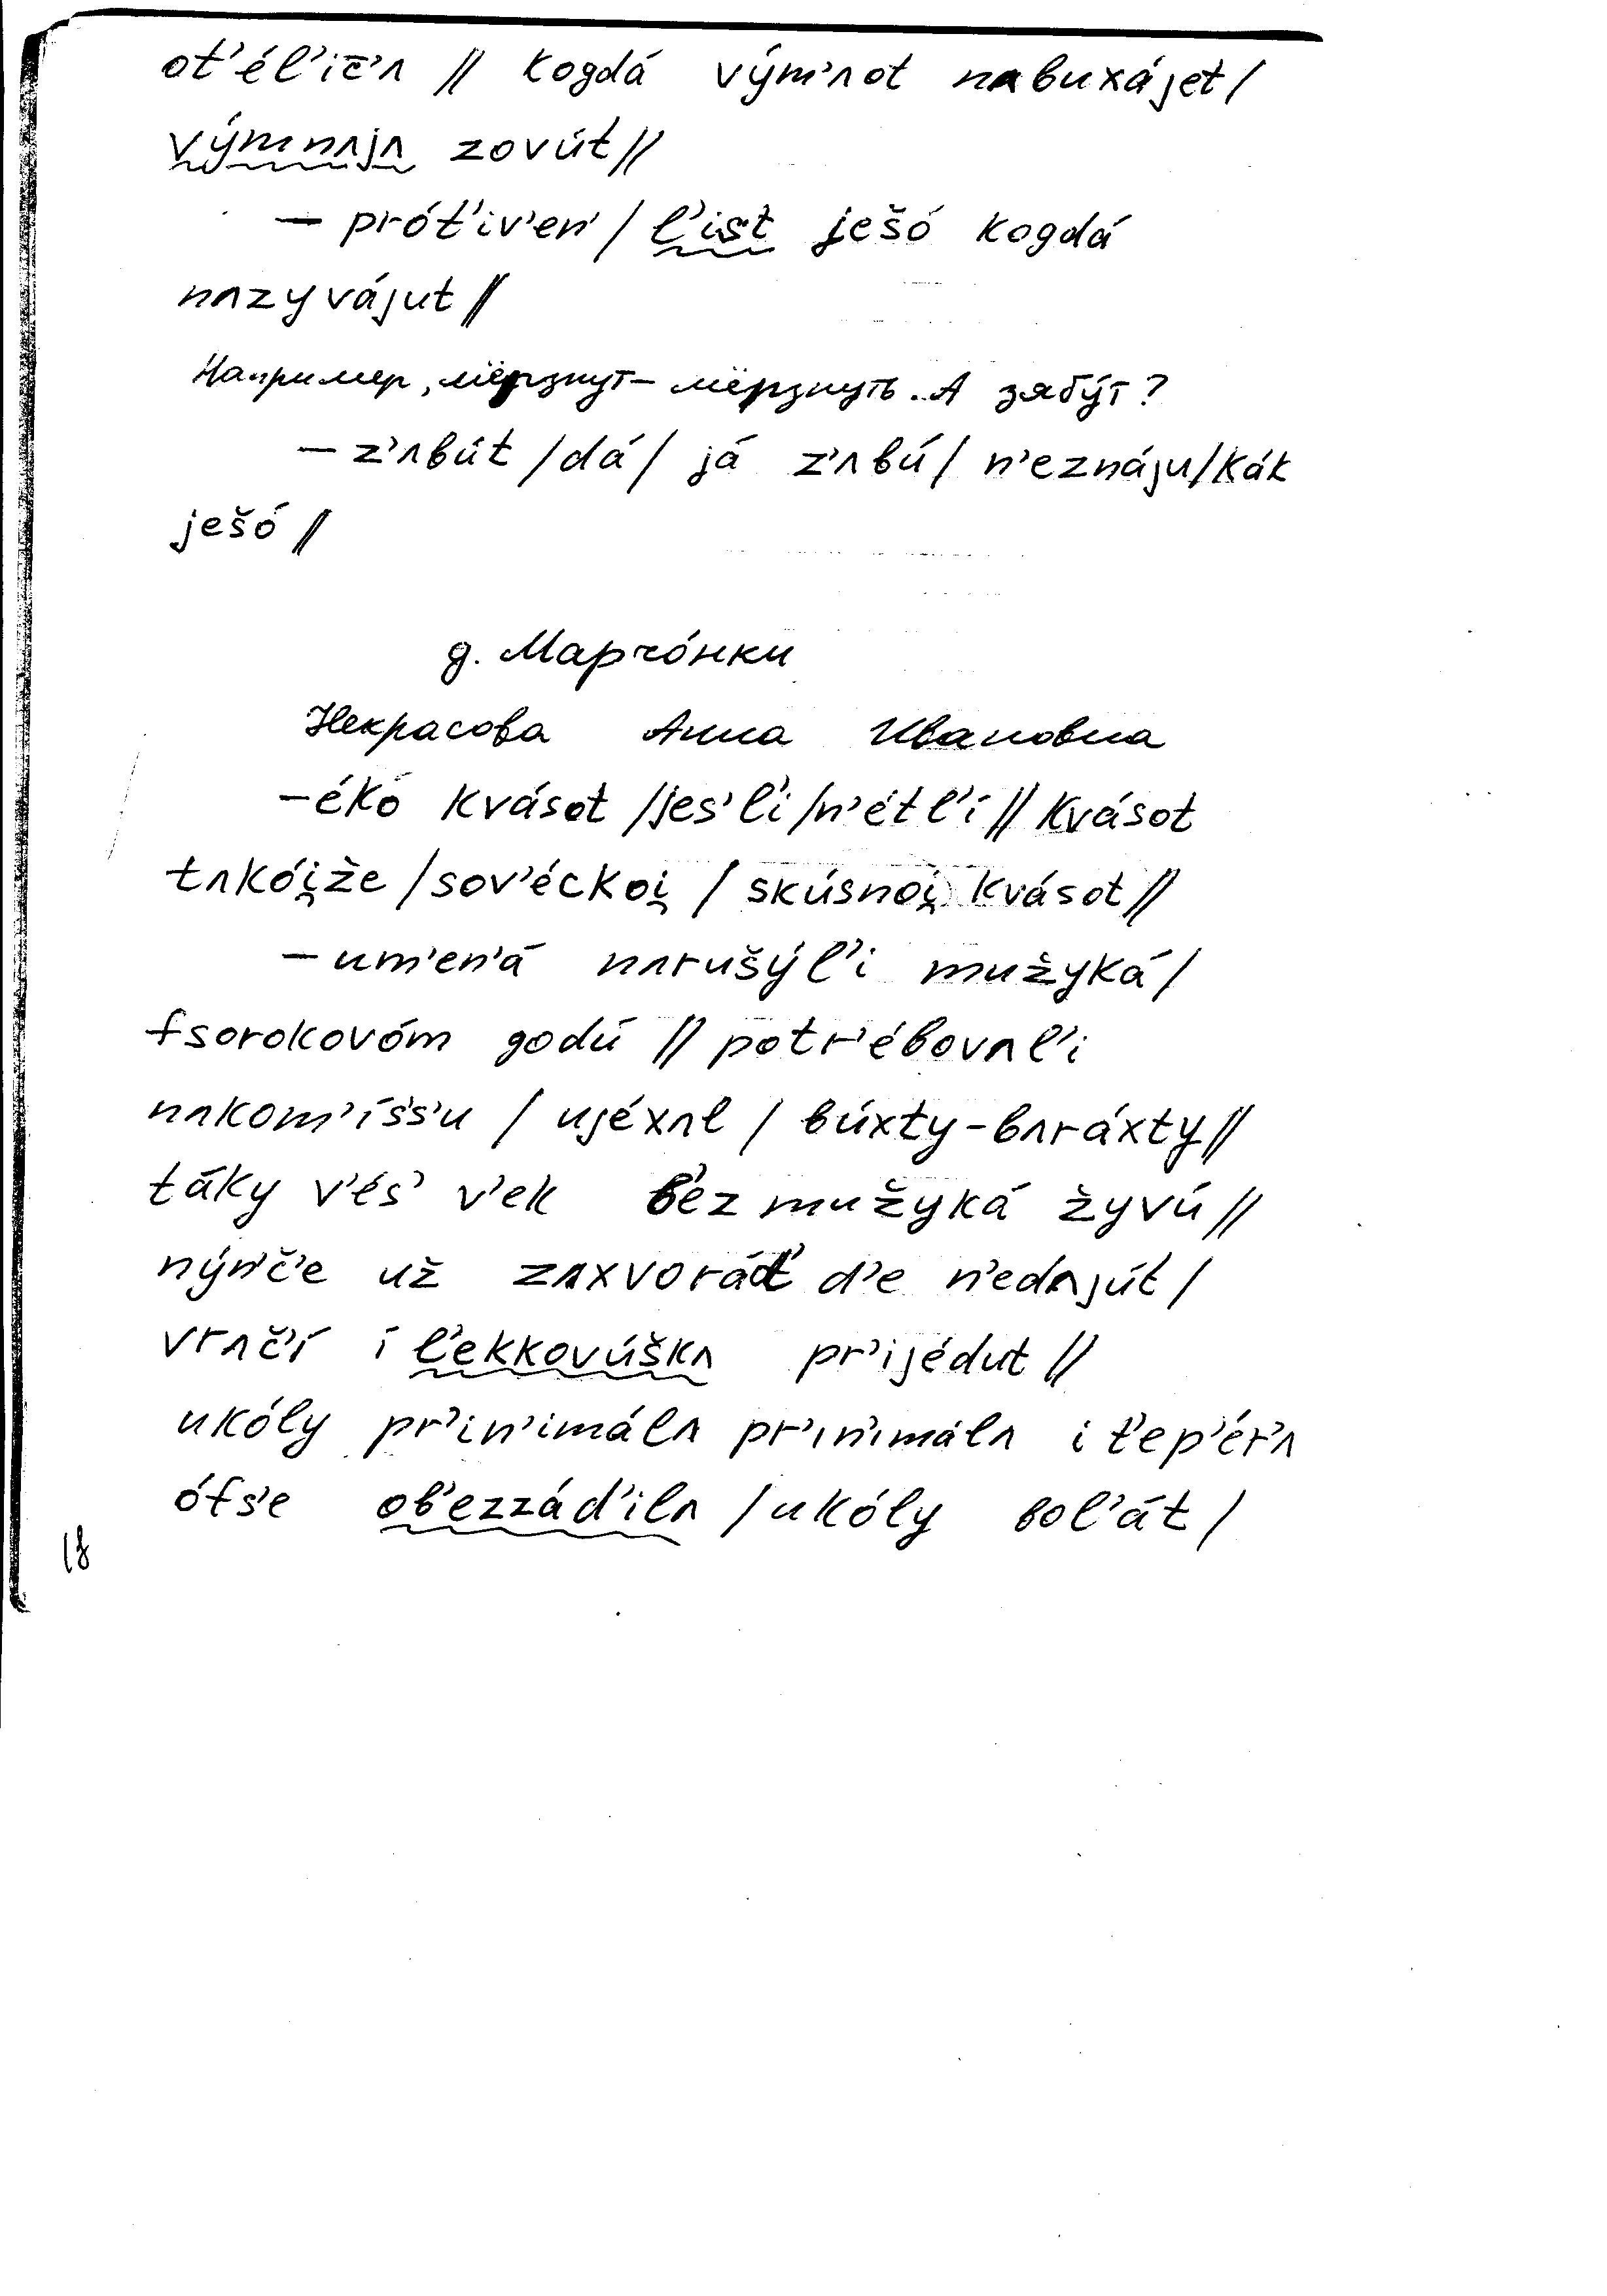 ot'él'ič'ʌ // kogdá vým'ʌot nʌbuxájet /
výmnʌjʌ zovút //
— prót'iv'en' / l'ist ješó kogdá
nʌzyvájut //
Например, мёрзнут – мёрзнуть.. А зябу́т?
— z'ʌbút / dá / já z'ʌbú / n'eznáju / kák
ješó //
д. Марчо́нки
Некрасова Анна Ивановна
— ékó kvásot / jes'l'i / n'étl'i // kvásot
tʌkói̯že / sov'éckoi̯ / skúsnoi̯ kvásot //
— um'en'á nʌrušýl'i mužyká /
fsorokovóm godú // potr'ébovʌl'i
nʌkom'ís's'u / ujéxʌl / búxty-bʌráxty //
táky v'és' v'ek b'éz mužyká žyvú //
nýn'č'e už zʌxvorát' d'e n'edʌjút /
vrʌč'í i l'ekkovúškʌ pr'ijédut //
ukóly pr'in'imálʌ pr'in'imálʌ i t'ep'ér'ʌ
ófs'e ob'ezzád'ilʌ / ukóly bol'át /
18